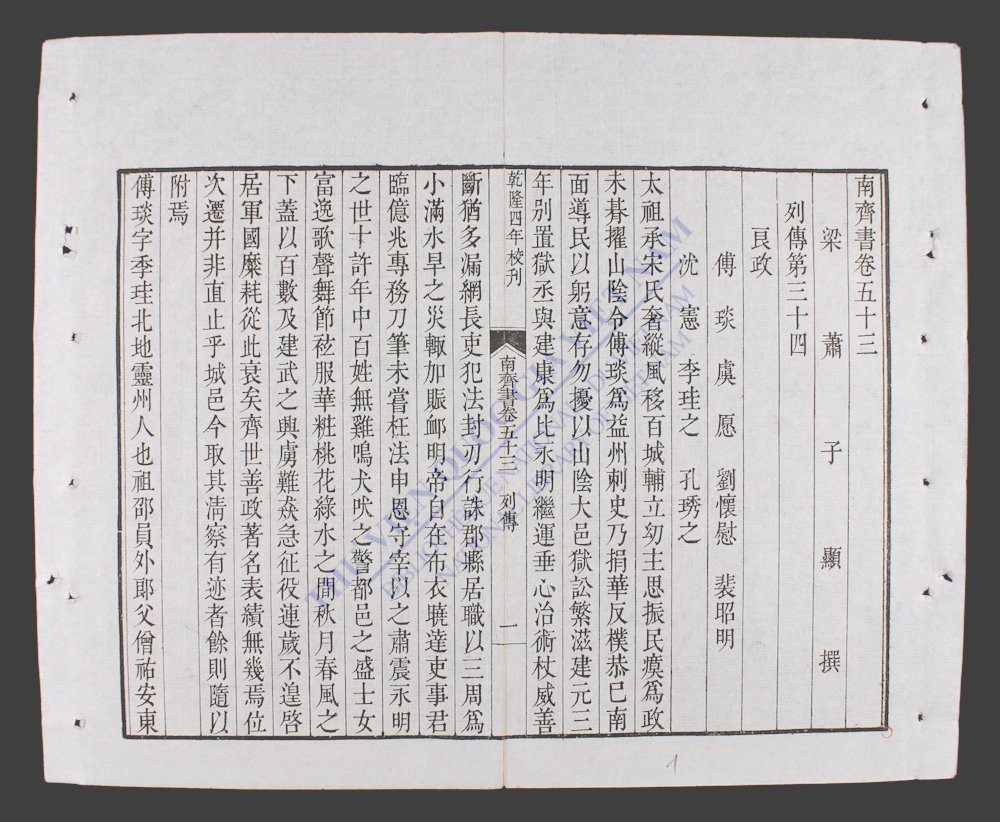 南齊書卷五十三
梁 蕭 子 顯 撰
列傳第三十四
良政
傅琰 虞愿 劉懷慰 裴昭明
沈憲 李珪之 孔琇之
太祖承宋氏奢縱風移百城輔立幼主思振民瘼為政
未朞擢山陰令傅琰為益州刺史乃捐華反樸恭巳南
面導民以躬意存勿擾以山陰大邑獄訟繁滋建元三
年别置獄丞與建康為比永明繼運垂心治術杖威善
乾隆四年校刊
南齊書卷五十三 列傳
一
斷猶多漏網長吏犯法封刃行誅郡縣居職以三周為
小滿水旱之災輙加賑䘏明帝自在布衣曉達吏事君
臨億兆專務刀筆未嘗枉法申恩守宰以之肅震永明
之世十許年中百姓無雞鳴犬吠之警都邑之盛士女
富逸歌聲舞節袨服華粧桃花綠水之間秋月春風之
下蓋以百數及建武之興虜難猋急征役連歲不遑啓
居軍國糜耗從此衰矣齊世善政著名表績無幾焉位
次遷升非直止乎城邑今取其清察有迹者餘則隨以
附焉
傅琰字季珪北地靈州人也祖邵員外郎父僧祐安東
THƯ VIỆN QUỐC GIA VIỆT NAM
BIBLIOTHEQUE NATIONALE DU VIETNAM
NATIONAL LIBRARY OF VIETNAM
1